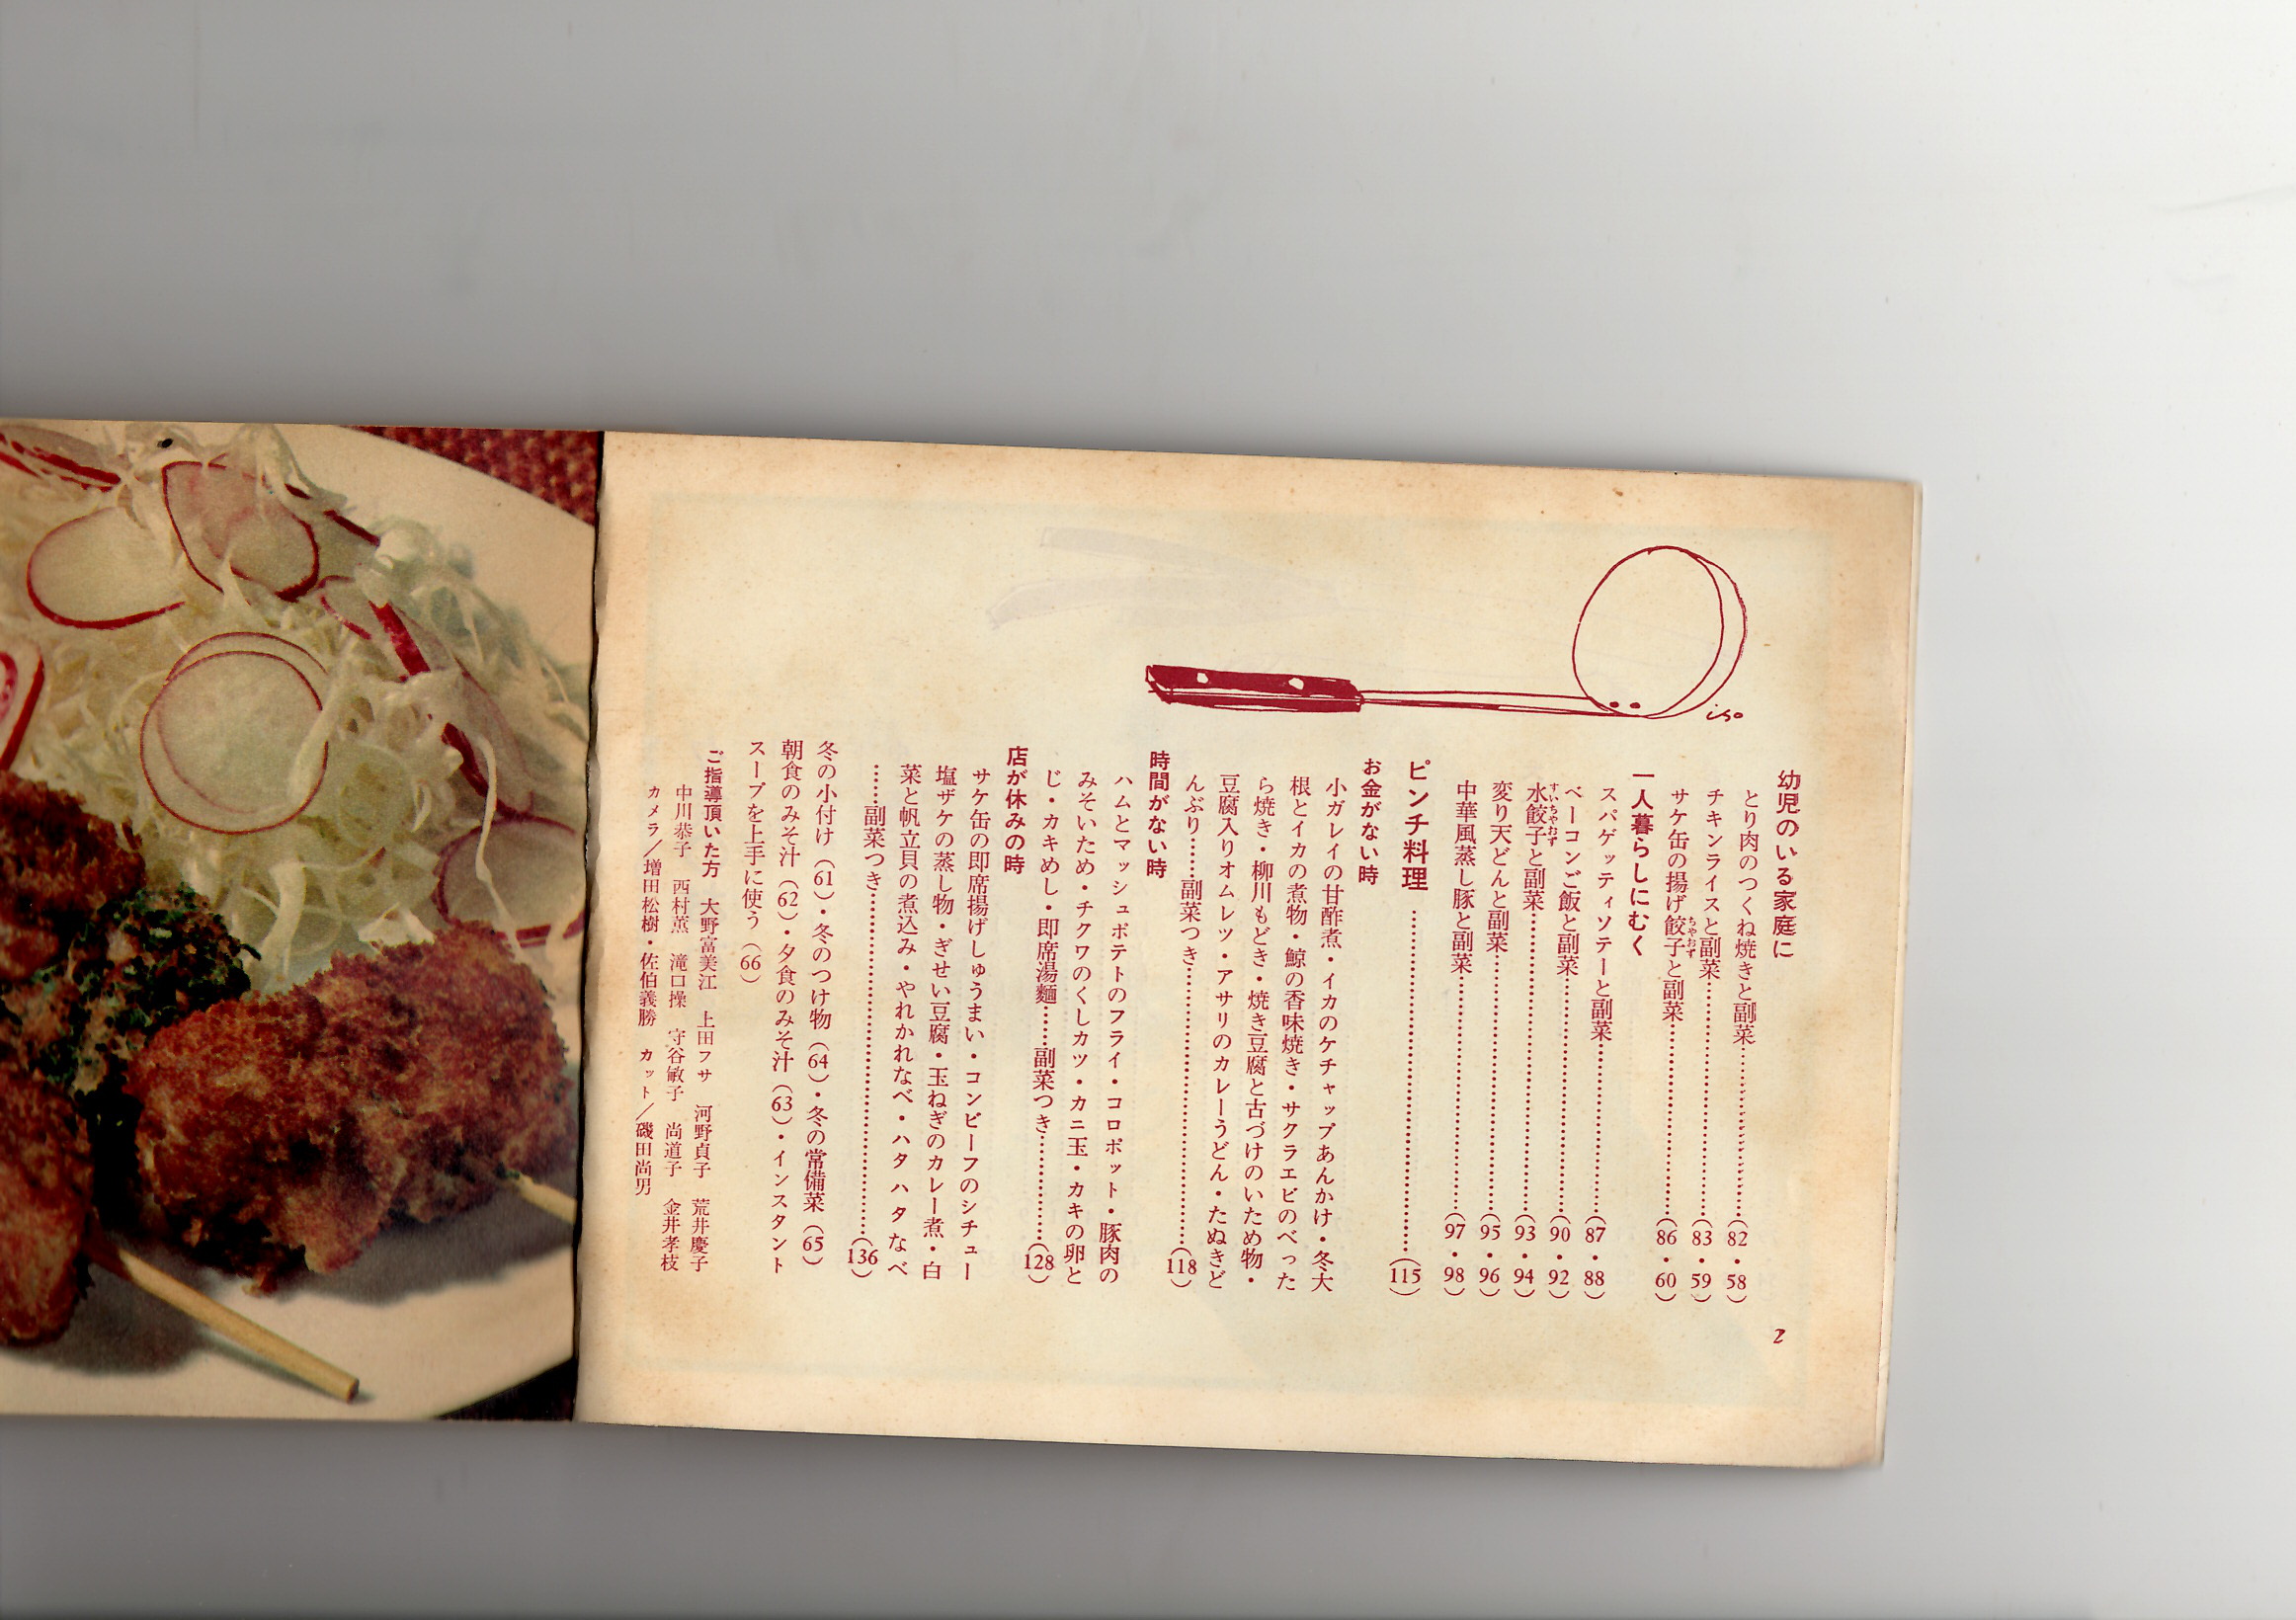 幼児のいる家庭に
とり肉のつくね焼きと副菜……………………(82・58)
チキンライスと副菜……………………(83・59)
サケ缶の揚げ餃子と副菜……………………(86・60)
ちやおず
一人暮らしにむく
スパゲッティソテーと副菜……………………(87・88)
ベーコンご飯と副菜……………………(90・92)
水餃子と副菜……………………(93・94)
すいちやおず
変り天どんと副菜……………………(95・96)
中華風蒸し豚と副菜……………………(97・98)
ピンチ料理……………………(115)
お金がない時
小ガレイの甘酢煮・イカのケチャップあんかけ・冬大
根とイカの煮物・鯨の香味焼き・サクラエビのべった
ら焼き・柳川もどき・焼き豆腐と古づけのいため物・
豆腐入りオムレツ・アサリのカレーうどん・たぬきど
んぶり……副菜つき……………………(118)
時間がない時
ハムとマッシュポテトのフライ・コロポット・豚肉の
みそいため・チクワのくしカツ・カニ玉・カキの卵と
じ・カキめし・即席湯麺……副菜つき……………(128)
店が休みの時
サケ缶の即席揚げしゅうまい・コンビーフのシチュー
塩ザケの蒸し物・ぎせい豆腐・玉ねぎのカレー煮・白
菜と帆立貝の煮込み・やれかれなべ・ハタハタなべ
……副菜つき……………………(136)
冬の小付け(61)・冬のつけ物(64)・冬の常備菜(65)
朝食のみそ汁(62)・夕食のみそ汁(63)・インスタント
スープを上手に使う(66)
ご指導頂いた方 大野富美江 上田フサ 河野貞子 荒井慶子
中川恭子 西村薫 滝口操 守谷敏子 尚道子 金井孝枝
カメラ/増田松樹・佐伯義勝 カット/磯田尚男
iso
2